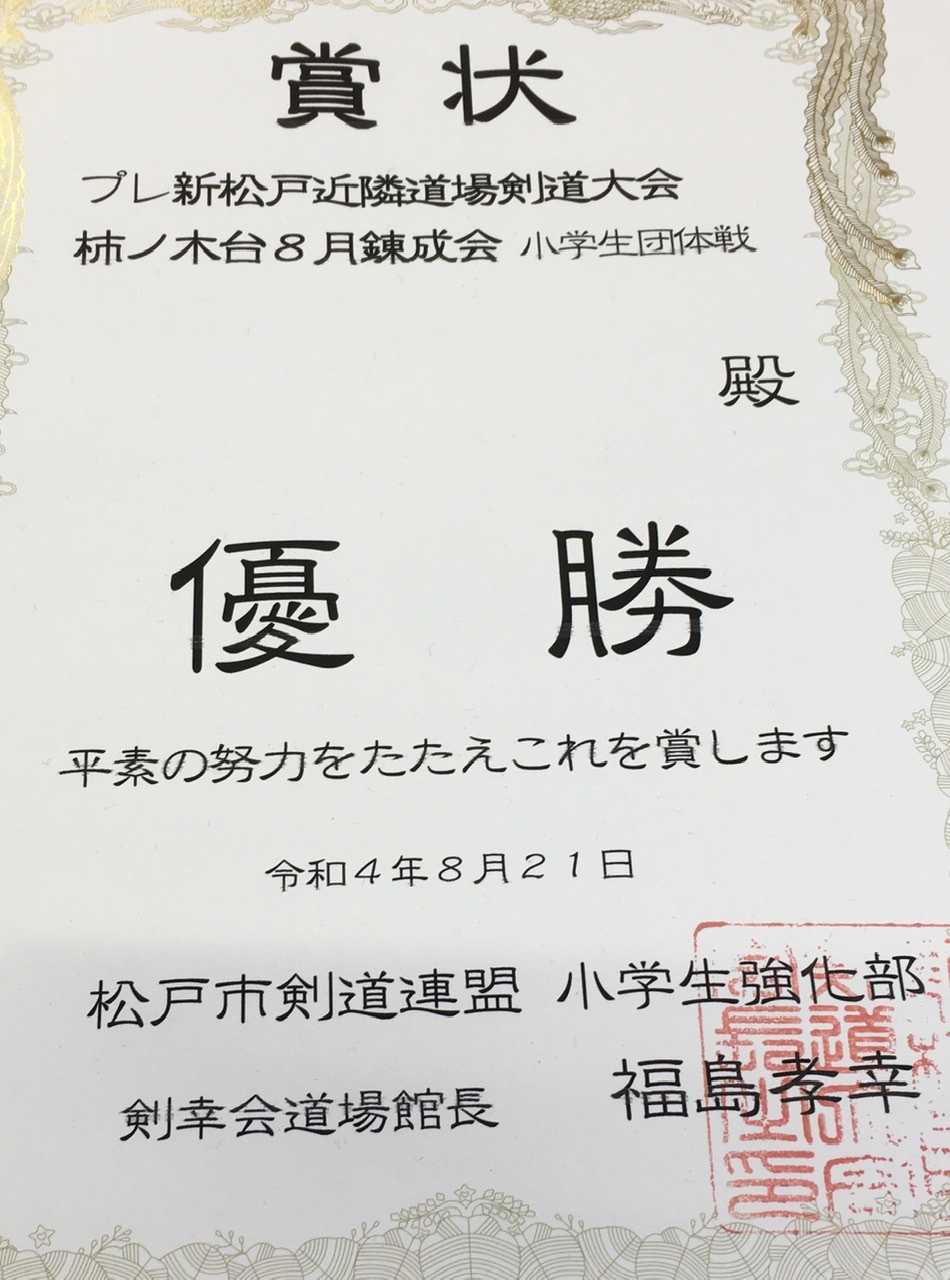 賞状
プレ新松戸近隣道場剣道大会
柿ノ木台８月錬成会 小学生団体戦
殿
優勝
平素の努力をたたえこれを賞します
令和４年８月２１日
松戸市剣道連盟 小学生強化部
剣幸会道場館長 福島孝幸